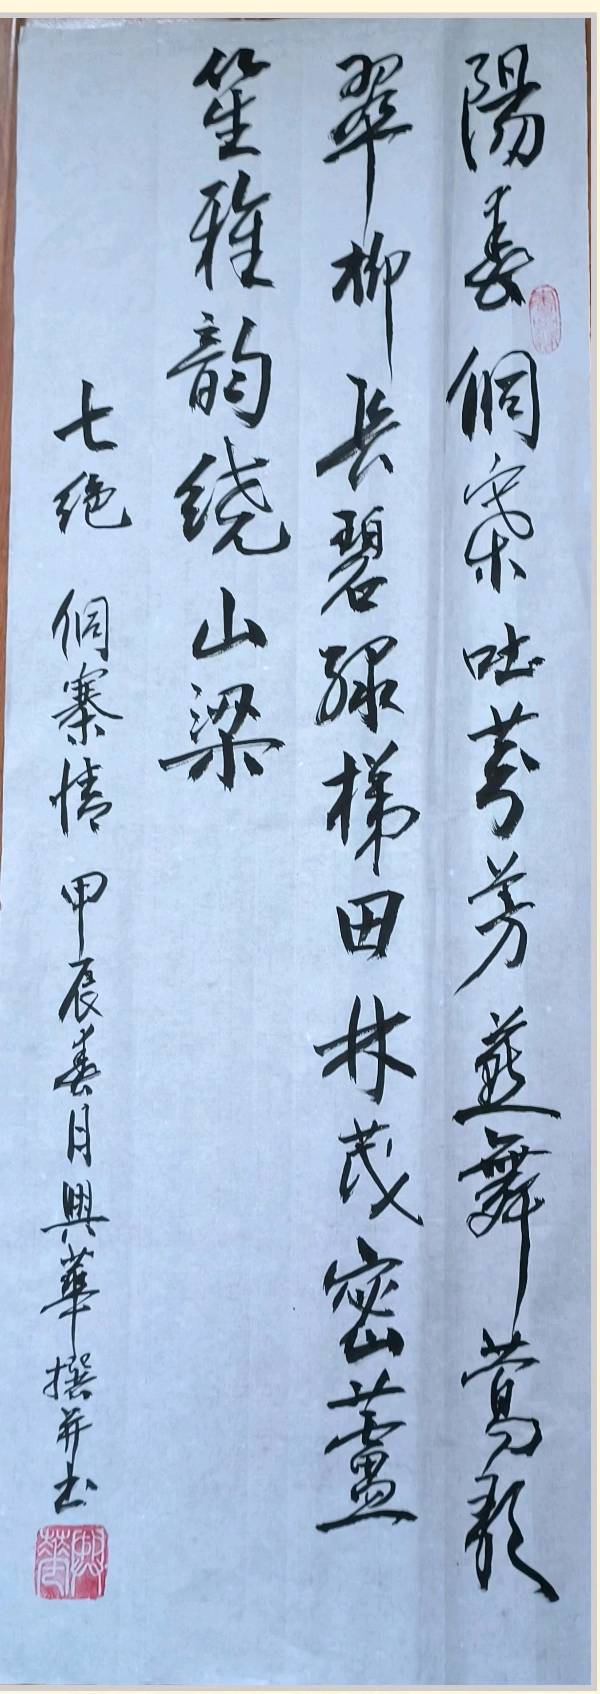 陽春侗寨吐芬芳燕舞莺歌
翠柳长碧绿梯田林茂密蘆
笙雅韵绕山梁
七绝 侗寨情 甲辰春月興華撰并书
興華